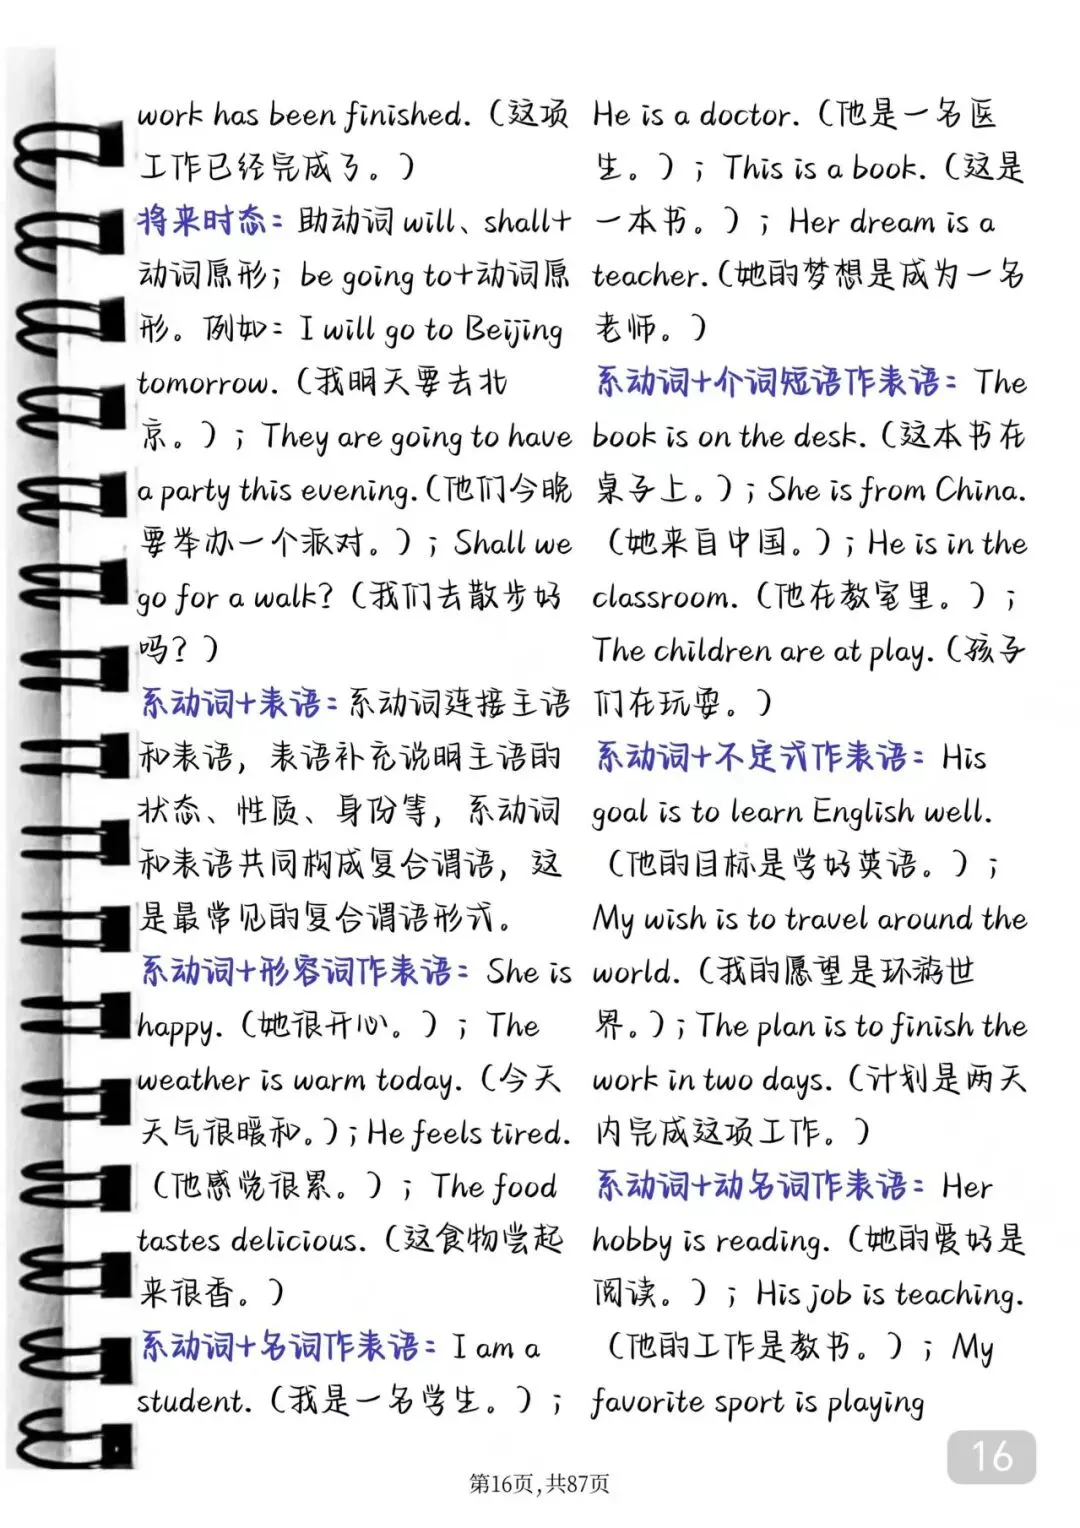 work has been finished.（这项
工作已经完成了。）
将来时态：助动词 will、shall+
动词原形；be going to+动词原
形。例如：I will go to Beijing
tomorrow.（我明天要去北
京。）；They are going to have
a party this evening.（他们今晚
要举办一个派对。）；Shall we
go for a walk?（我们去散步好
吗？）
系动词+表语：系动词连接主语
和表语，表语补充说明主语的
状态、性质、身份等，系动词
和表语共同构成复合谓语，这
是最常见的复合谓语形式。
系动词+形容词作表语：She is
happy.（她很开心。）；The
weather is warm today.（今天
天气很暖和。）；He feels tired.
（他感觉很累。）；The food
tastes delicious.（这食物尝起
来很香。）
系动词+名词作表语：I am a
student.（我是一名学生。）；
He is a doctor.（他是一名医
生。）；This is a book.（这是
一本书。）；Her dream is a
teacher.（她的梦想是成为一名
老师。）
系动词+介词短语作表语：The
book is on the desk.（这本书在
桌子上。）；She is from China.
（她来自中国。）；He is in the
classroom.（他在教室里。）；
The children are at play.（孩子
们在玩耍。）
系动词+不定式作表语：His
goal is to learn English well.
（他的目标是学好英语。）；
My wish is to travel around the
world.（我的愿望是环游世
界。）；The plan is to finish the
work in two days.（计划是两天
内完成这项工作。）
系动词+动名词作表语：Her
hobby is reading.（她的爱好是
阅读。）；His job is teaching.
（他的工作是教书。）；My
favorite sport is playing
16
第16页,共87页